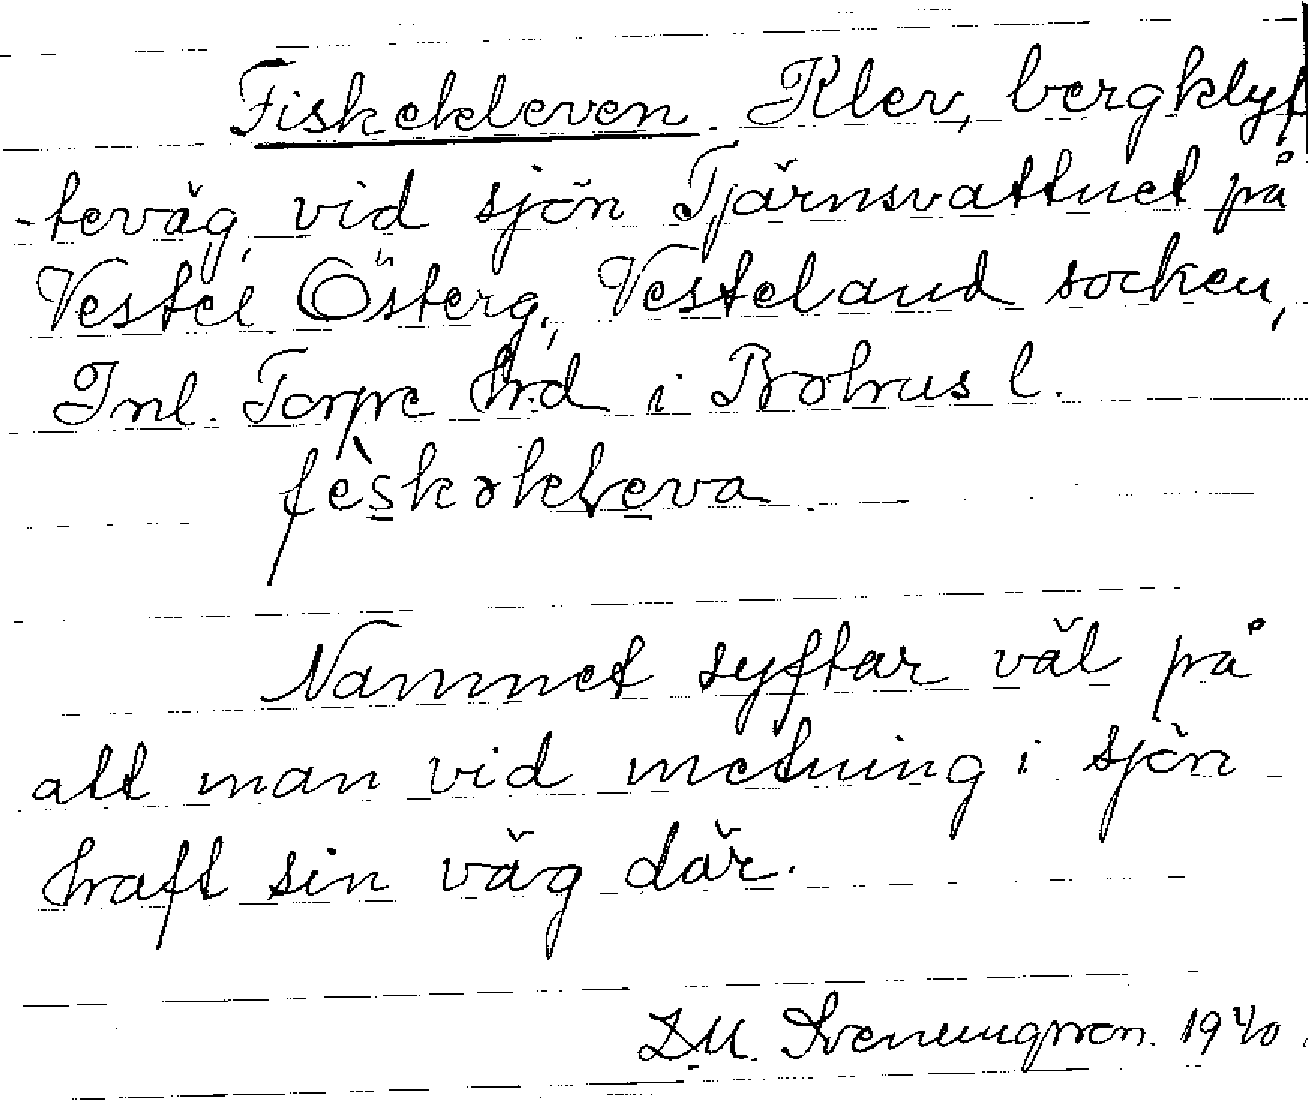 Fiskekleven Klev, bergklyf
-teväg, vid sjön Tjärnsvattnet på
Vestel Österg., Vesteland socken,
Inl. Torpe Hrd i Bohus l.
fèskəkleva
Namnet syftar väl på
att man vid metning i sjön
haft sin väg där.
1940